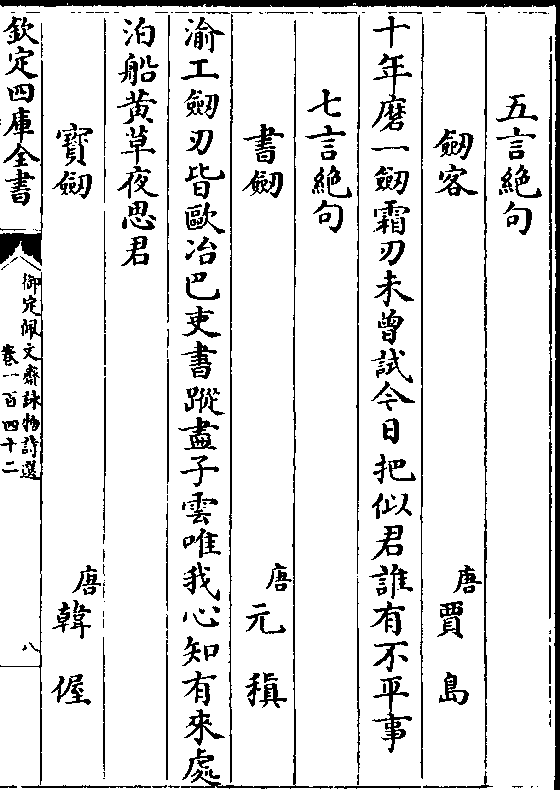 五言絶句
劒客 唐賈島
十年磨一劒霜刃未曾試今日把似君誰有不平事
七言絶句
書劒 唐元稹
渝工劒刃皆歐冶巴吏書蹤盡子雲唯我心知有來處
泊船黄草夜思君
寳劒 唐韓偓
欽定四庫全書
御定佩文齋詠物詩選
卷一百四十二
八